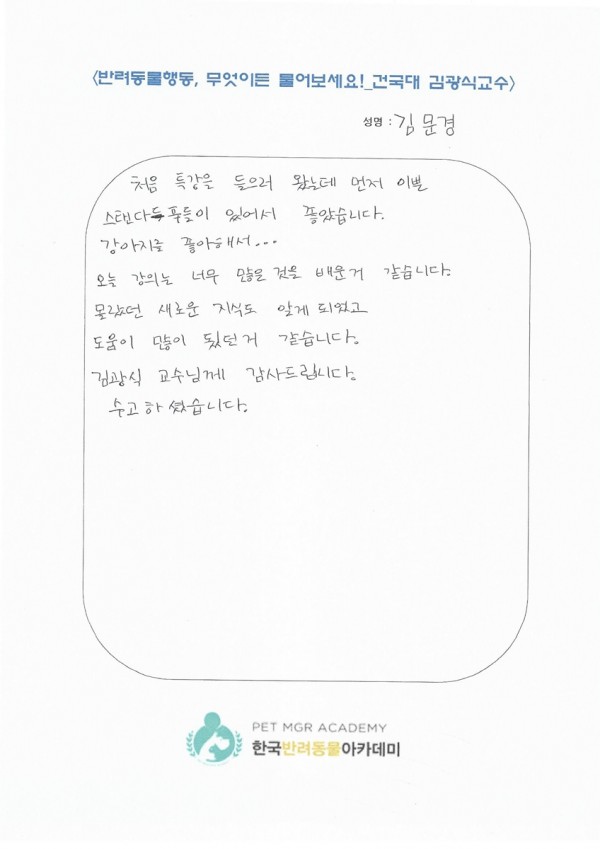 <반려동물행동, 무엇이든 물어보세요!_건국대 김광식교수>
성명 : 김문경
처음 특강을 들으러 왔는데 먼저 이쁜
스탠다드 푸들이 있어서 좋았습니다.
강아지를 좋아해서...
오늘 강의는 너무 많은 것을 배운거 같습니다.
몰랐던 새로운 지식도 알게 되었고
도움이 많이 됬던거 같습니다.
김광식 교수님께 감사드립니다.
수고하셨습니다.
PET MGR ACADEMY
한국반려동물아카데미